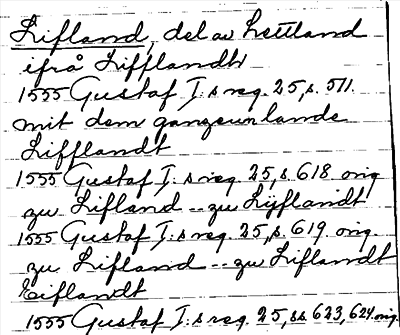 Lifland, del av Lettland
ifrå Lifflandh
1555 Gustaf I:s reg. 25, s. 511.
mit dem ganzenn lande
Lifflandt
1555 Gustaf I:s reg. 25, s. 618 orig
zu Lifland -- zu Lijflandt
1555 Gustaf I:s reg. 25, s. 619. orig.
zu Lifland -- zu Liflandt
Eiflandt
1555 Gustaf I:s reg. 25, ss. 623, 624. orig.